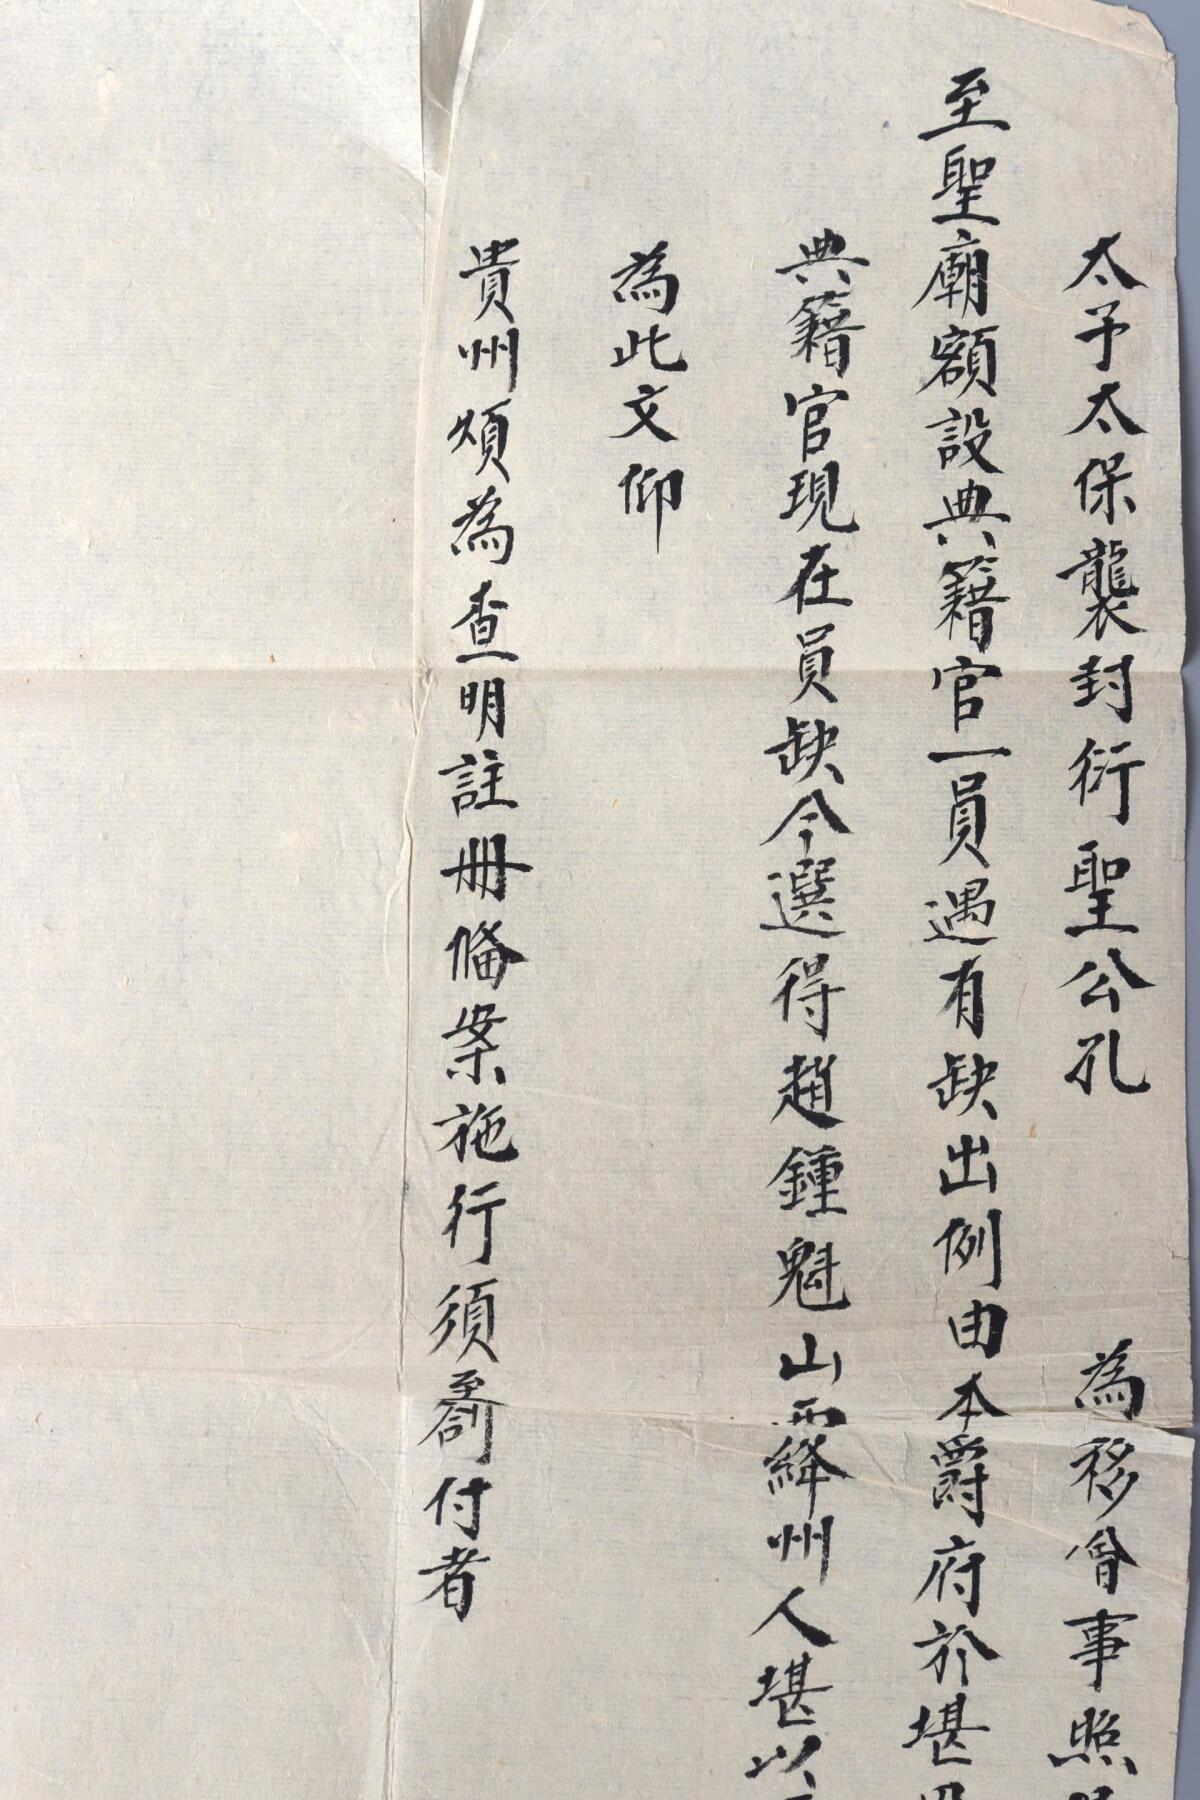 太子太保襲封衍聖公孔　為移會事照
至聖廟額設典籍官一員遇有缺出例由本爵府於堪
典籍官現在員缺今選得趙鍾魁山西絳州人堪以
為此文仰
貴州煩為查明註冊備案施行須劄付者